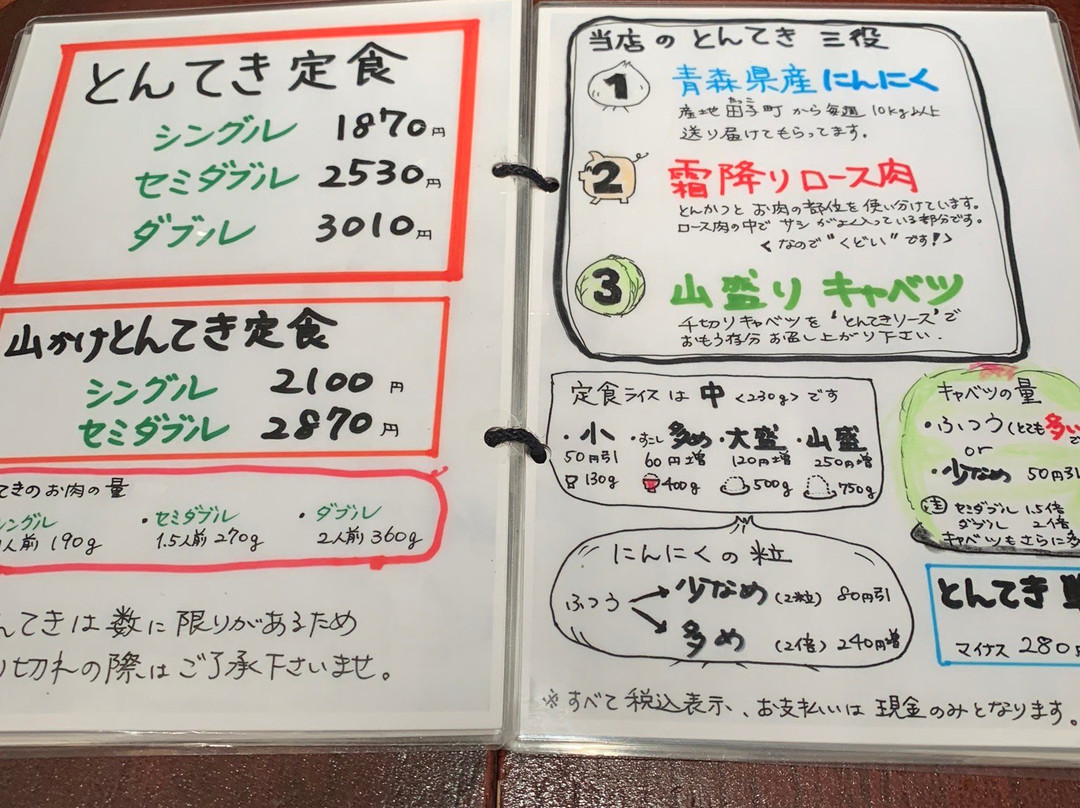 とんてき定食
シングル 1870円
セミダブル 2530円
ダブル 3010円
山かけとんてき定食
シングル 2100円
セミダブル 2870円
てきのお肉の量
ングル ・セミダブル ・ダブル
人前 190g 1.5人前 270g 2人前 360g
んてきは数に限りがあるため
切れの際はご了承下さいませ。
当店のとんてき三役
1 青森県産にんにく
産地田子町から毎週10kg以上
たっこ
送り届けてもらってます。
2 霜降りロース肉
とんかつとお肉の部位を使い分けています。
ロース肉の中でサシがよく入っている部分です。
くなので"くどい"です!>
3 山盛りキャベツ
千切りキャベツを'とんてきソース'で
おもう存分お召し上がり下さい.
定食ライスは中<230g>です
・小 ・すこし多め ・大盛 ・山盛
50円引 60円増 120円増 250円増
130g 400g 500g 750g
にんにくの粒
ふつう 少なめ(2粒) 80円引
多め(2倍) 240円増
キャベツの量
・ふつう(とても多い
で
or
・少なめ 50円引
注 セミダブル 1.5倍
ダブル 2倍
キャベツもさらに多
とんてき
マイナス 280円
※すべて税込表示、お支払いは現金のみとなります。